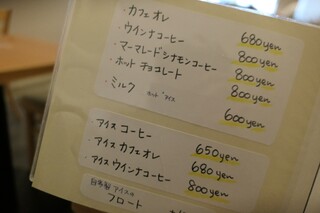 ・カフェオレ 680yen
・ウインナコーヒー 800yen
・マーマレードシナモンコーヒー 800yen
・ホットチョコレート 800yen
・ミルク ホット アイス 600yen
アイスコーヒー 650yen
・アイスカフェオレ 680yen
・アイスウインナコーヒー 800yen
自家製アイスの
フロート